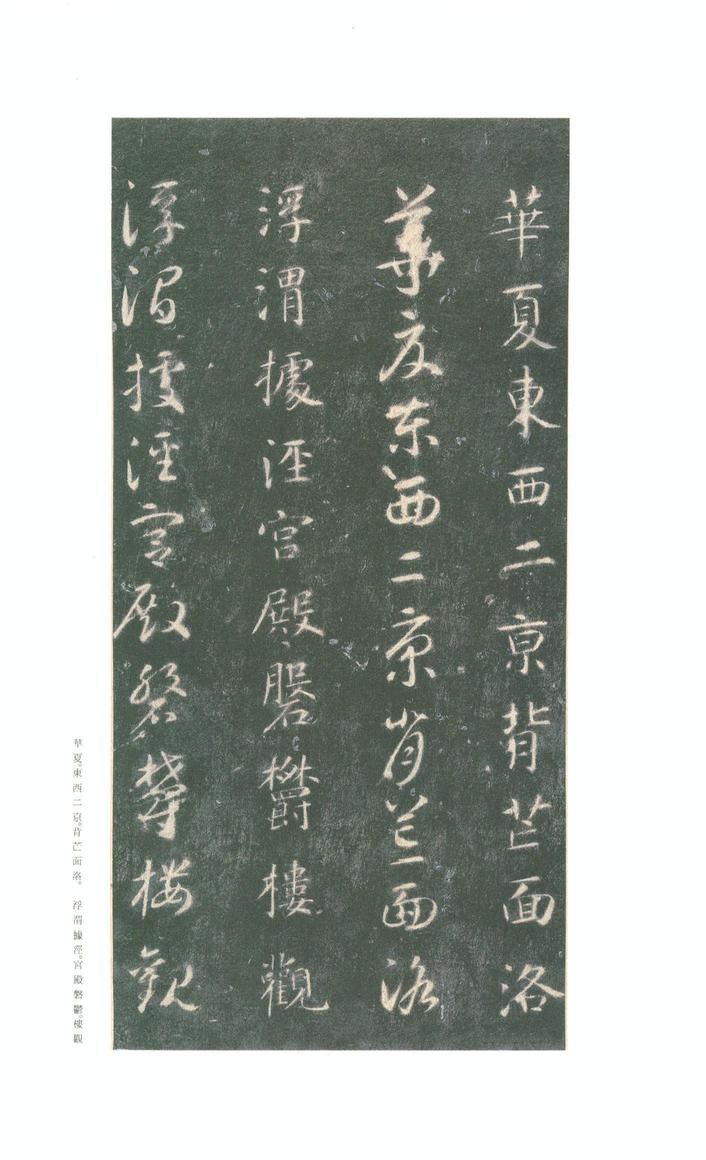 華夏東西二京背芒面洛
華夏東西二京背芒面洛
浮渭據涇宮殿磐欝樓觀
浮渭據涇宮殿磐欝樓觀
華夏。東西二京。背芒面洛。浮渭據涇。宮殿磐鬱。樓觀